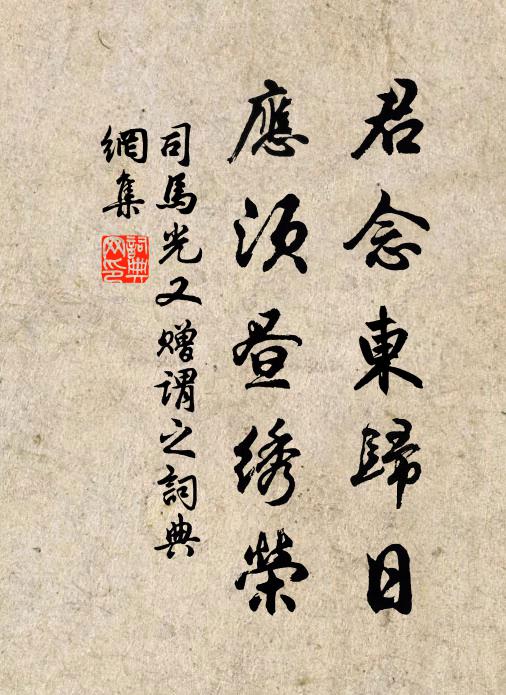 君念東歸日
應須晝綉榮
司馬光又贈謂之詞典
網集
詞典
网印